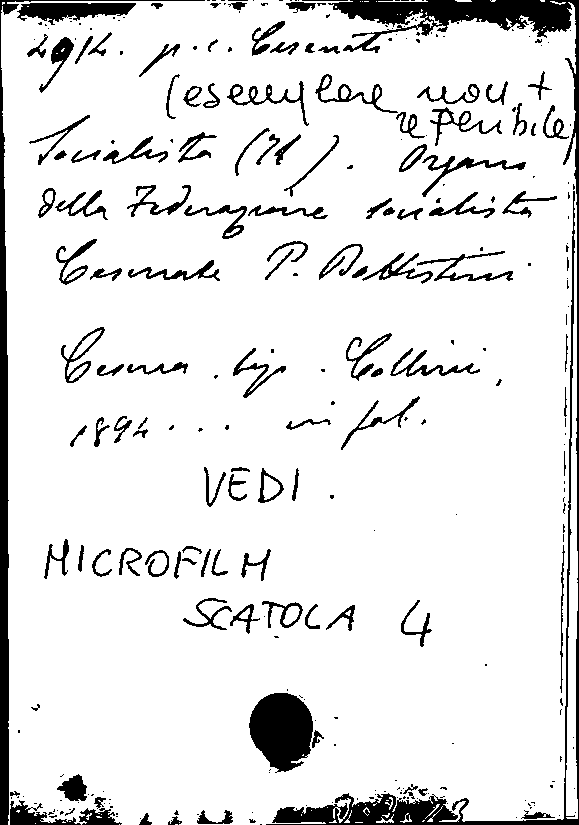 2912. p.c. Cesenati
(esemplare non +
reperibile)
Socialista (Il). Organo
della Federazione socialista
Cesenate P. Battistini
Cesena. tip. Collini,
1894... in fol.
VEDI.
MICROFILM
SCATOLA 4